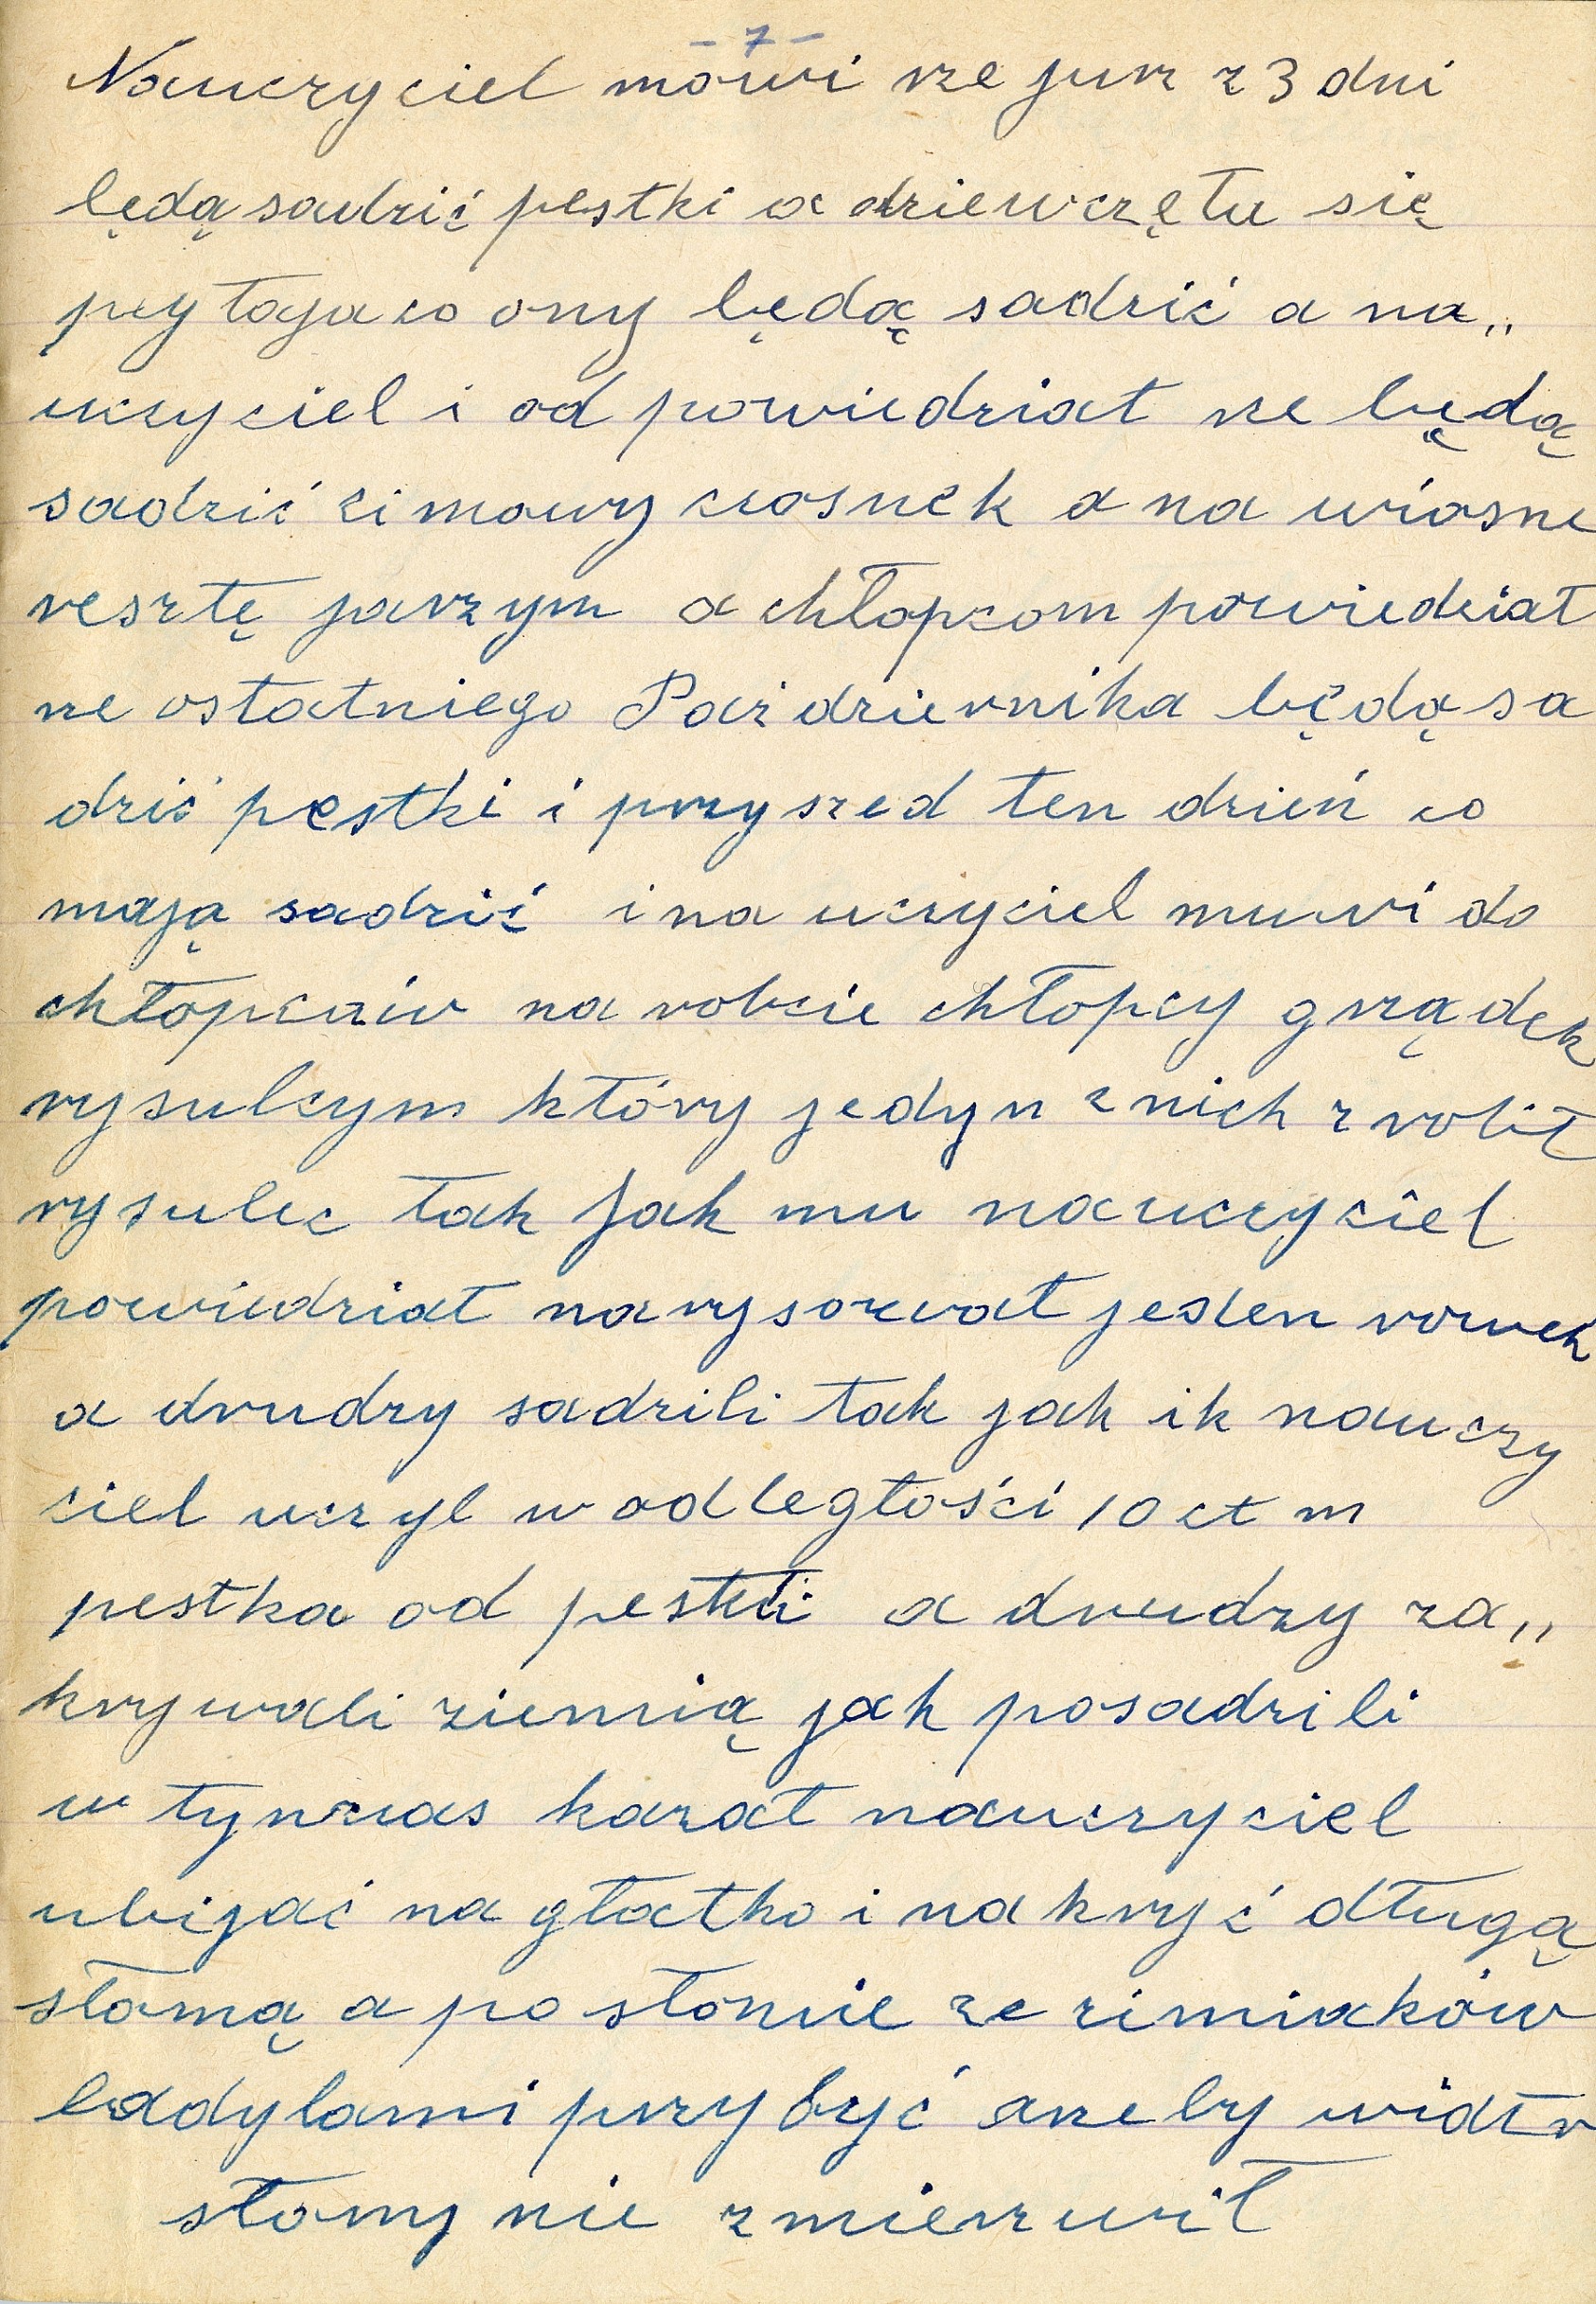 - 7 -
Nauczyciel mówi rze jurz z 3 dni
będą sadzić pestki a dziewczęta się
pytaja co ony będą sadzić a na„
uczyciel i od powiedział rze będą
sadzić zimowy czosnek a na wiosne
resztę jarzym a chłopcom powiedział
rze ostatniego Października będą sa
dzić pestki i przyszed ten dzień co
mają sadzić i na uczyciel muwi do
chłopców na robcie chłopcy grządek
rysulcym który jedyn z nich zrobił
rysulec tak jak mu nauczyciel
powiedział narysował jeden rowek
a drudzy sadzili tak jak ik nauczy
ciel uczył w odległości 10 ct m
pestka od pestki a drudzy za„
krywali ziemią jak posadzili
w tynczas kazał nauczyciel
ubijać na głatko i nakryć długą
słomą a po słomie ze zimiaków
badylami przybyć arzeby wiatr
słomy nie zmierzwił